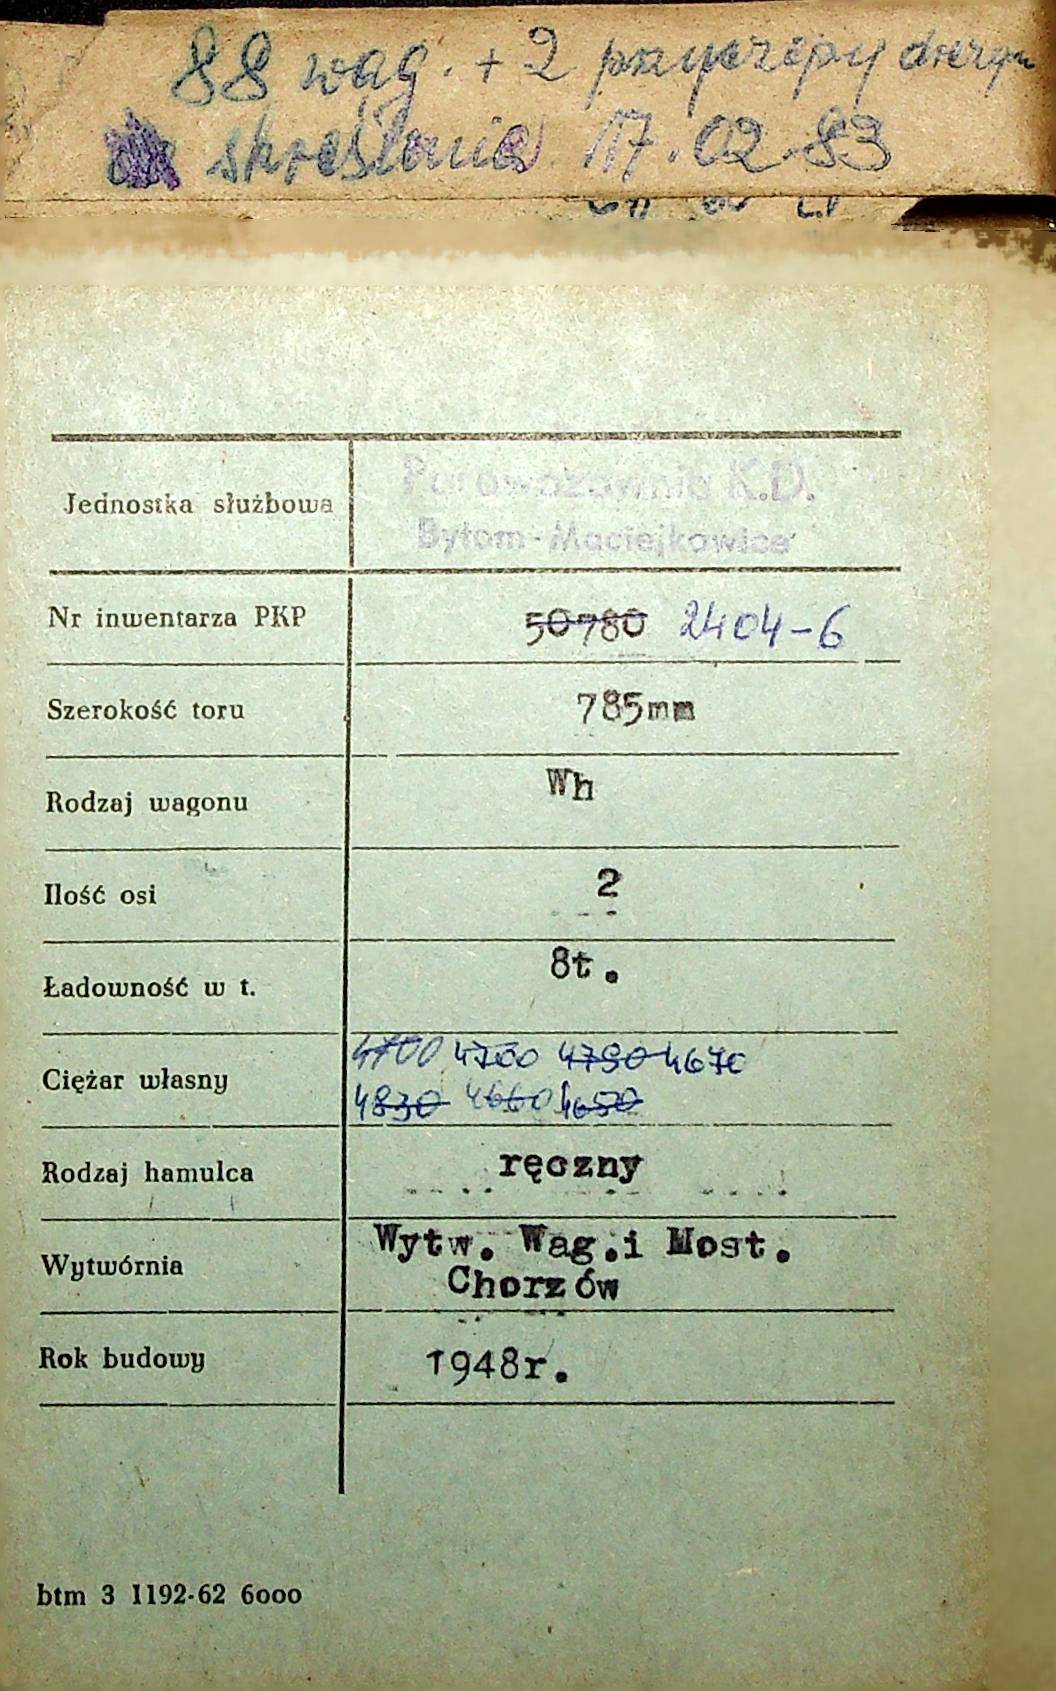 88 wag. + 2 przyczepy drezyn
skreślenie 17.02.83
Jednostka służbowa Parowozownia K.D.
Bytom-Maciejkowice
Nr inwentarza PKP 50780 2404-6
Szerokość toru 785mm
Rodzaj wagonu Wh
Ilość osi 2
Ładowność w t. 8t.
Ciężar własny 4700 4760 4790 4670
4830 4660 4650
Rodzaj hamulca ręczny
Wytwórnia Wytw. Wag.i Most.
Chorzów
Rok budowy 1948r.
btm 3 1192-62 6000